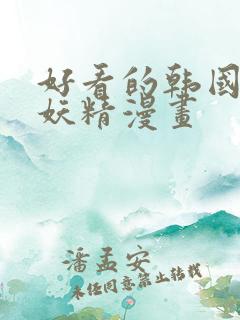 好看的韩国
妖精漫畫
潘孟安
未经同意禁止转载